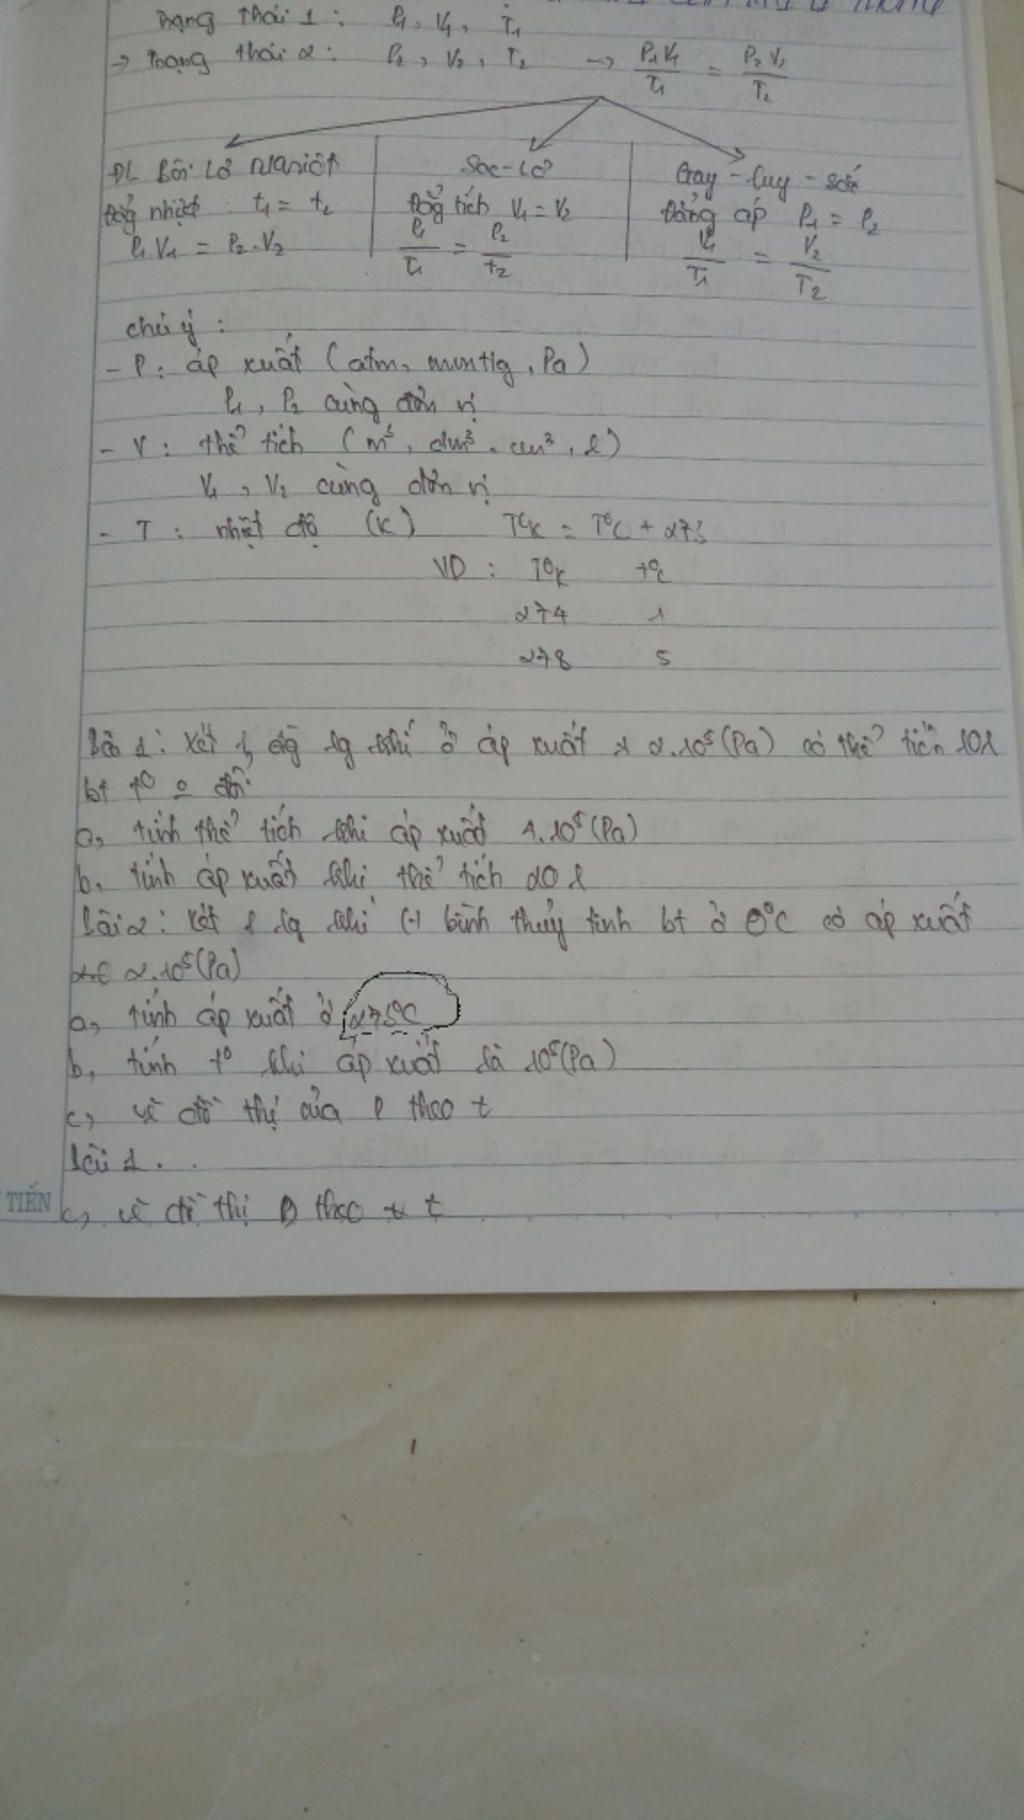 Trạng thái 1: P₁, V₁, T₁
→ Trạng thái 2: P₂, V₂, T₂ → P₁V₁/T₁ = P₂V₂/T₂
ĐL Bôi Lơ Mariôt
Đẳng nhiệt t₁ = t₂
P₁.V₁ = P₂.V₂
Sac-Lơ
Đẳng tích V₁ = V₂
P₁/T₁ = P₂/t₂
Gay-Luy-Sác
Đẳng áp P₁ = P₂
V₁/T₁ = V₂/T₂
chú ý:
- P: áp xuất (atm, mmHg, Pa)
P₁, P₂ cùng đơn vị
- V: thể tích (m³, dm³, cm³, l)
V₁, V₂ cùng đơn vị
- T: nhiệt độ (K) T°K = T°C + 273
VD: T°K t°C
274 1
278 5
Bài 1: Xét 1 lg khí ở áp xuất 2.10⁵(Pa) có thể tích 10l
bt t° o đổi
a, tính thể tích khi áp xuất 4.10⁵(Pa)
b, tính áp xuất khi thể tích 20l
Bài 2: Xét 1 lg khí (-) bình thủy tinh bt ở 0°C có áp xuất
2.10⁵(Pa)
a, tính áp xuất ở 273°C
b, tính t° khi áp xuất là 10⁵(Pa)
c, vẽ đồ thị của P theo t
bài 1.
TIẾN
c, vẽ đồ thị P theo t